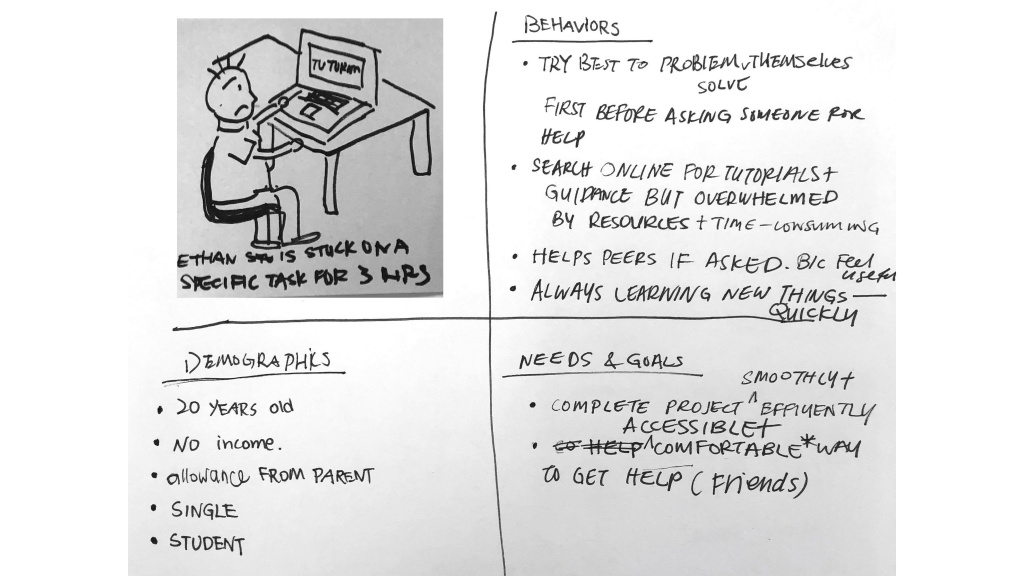 TUTURIAL
ETHAN IS STUCK ON A
SPECIFIC TASK FOR 3 HRS
BEHAVIORS
• TRY BEST TO PROBLEM SOLVE THEMSELVES
FIRST BEFORE ASKING SOMEONE FOR
HELP
• SEARCH ONLINE FOR TUTORIALS +
GUIDANCE BUT OVERWHELMED
BY RESOURCES + TIME-CONSUMING
• HELPS PEERS IF ASKED. B/C Feel
useful
• ALWAYS LEARNING NEW THINGS —
QUICKLY
DEMOGRAPHICS
• 20 YEARS old
• NO income.
• allowance FROM PARENT
• SINGLE
• STUDENT
NEEDS & GOALS
• COMPLETE PROJECT SMOOTHLY + EFFICIENTLY
• ACCESSIBLE + COMFORTABLE* WAY
TO GET HELP (Friends)